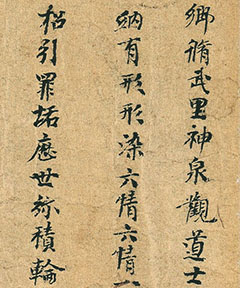 鄉脩武里神泉觀道士
納有形形染六情六情一
招引罪詬歷世弥積輪